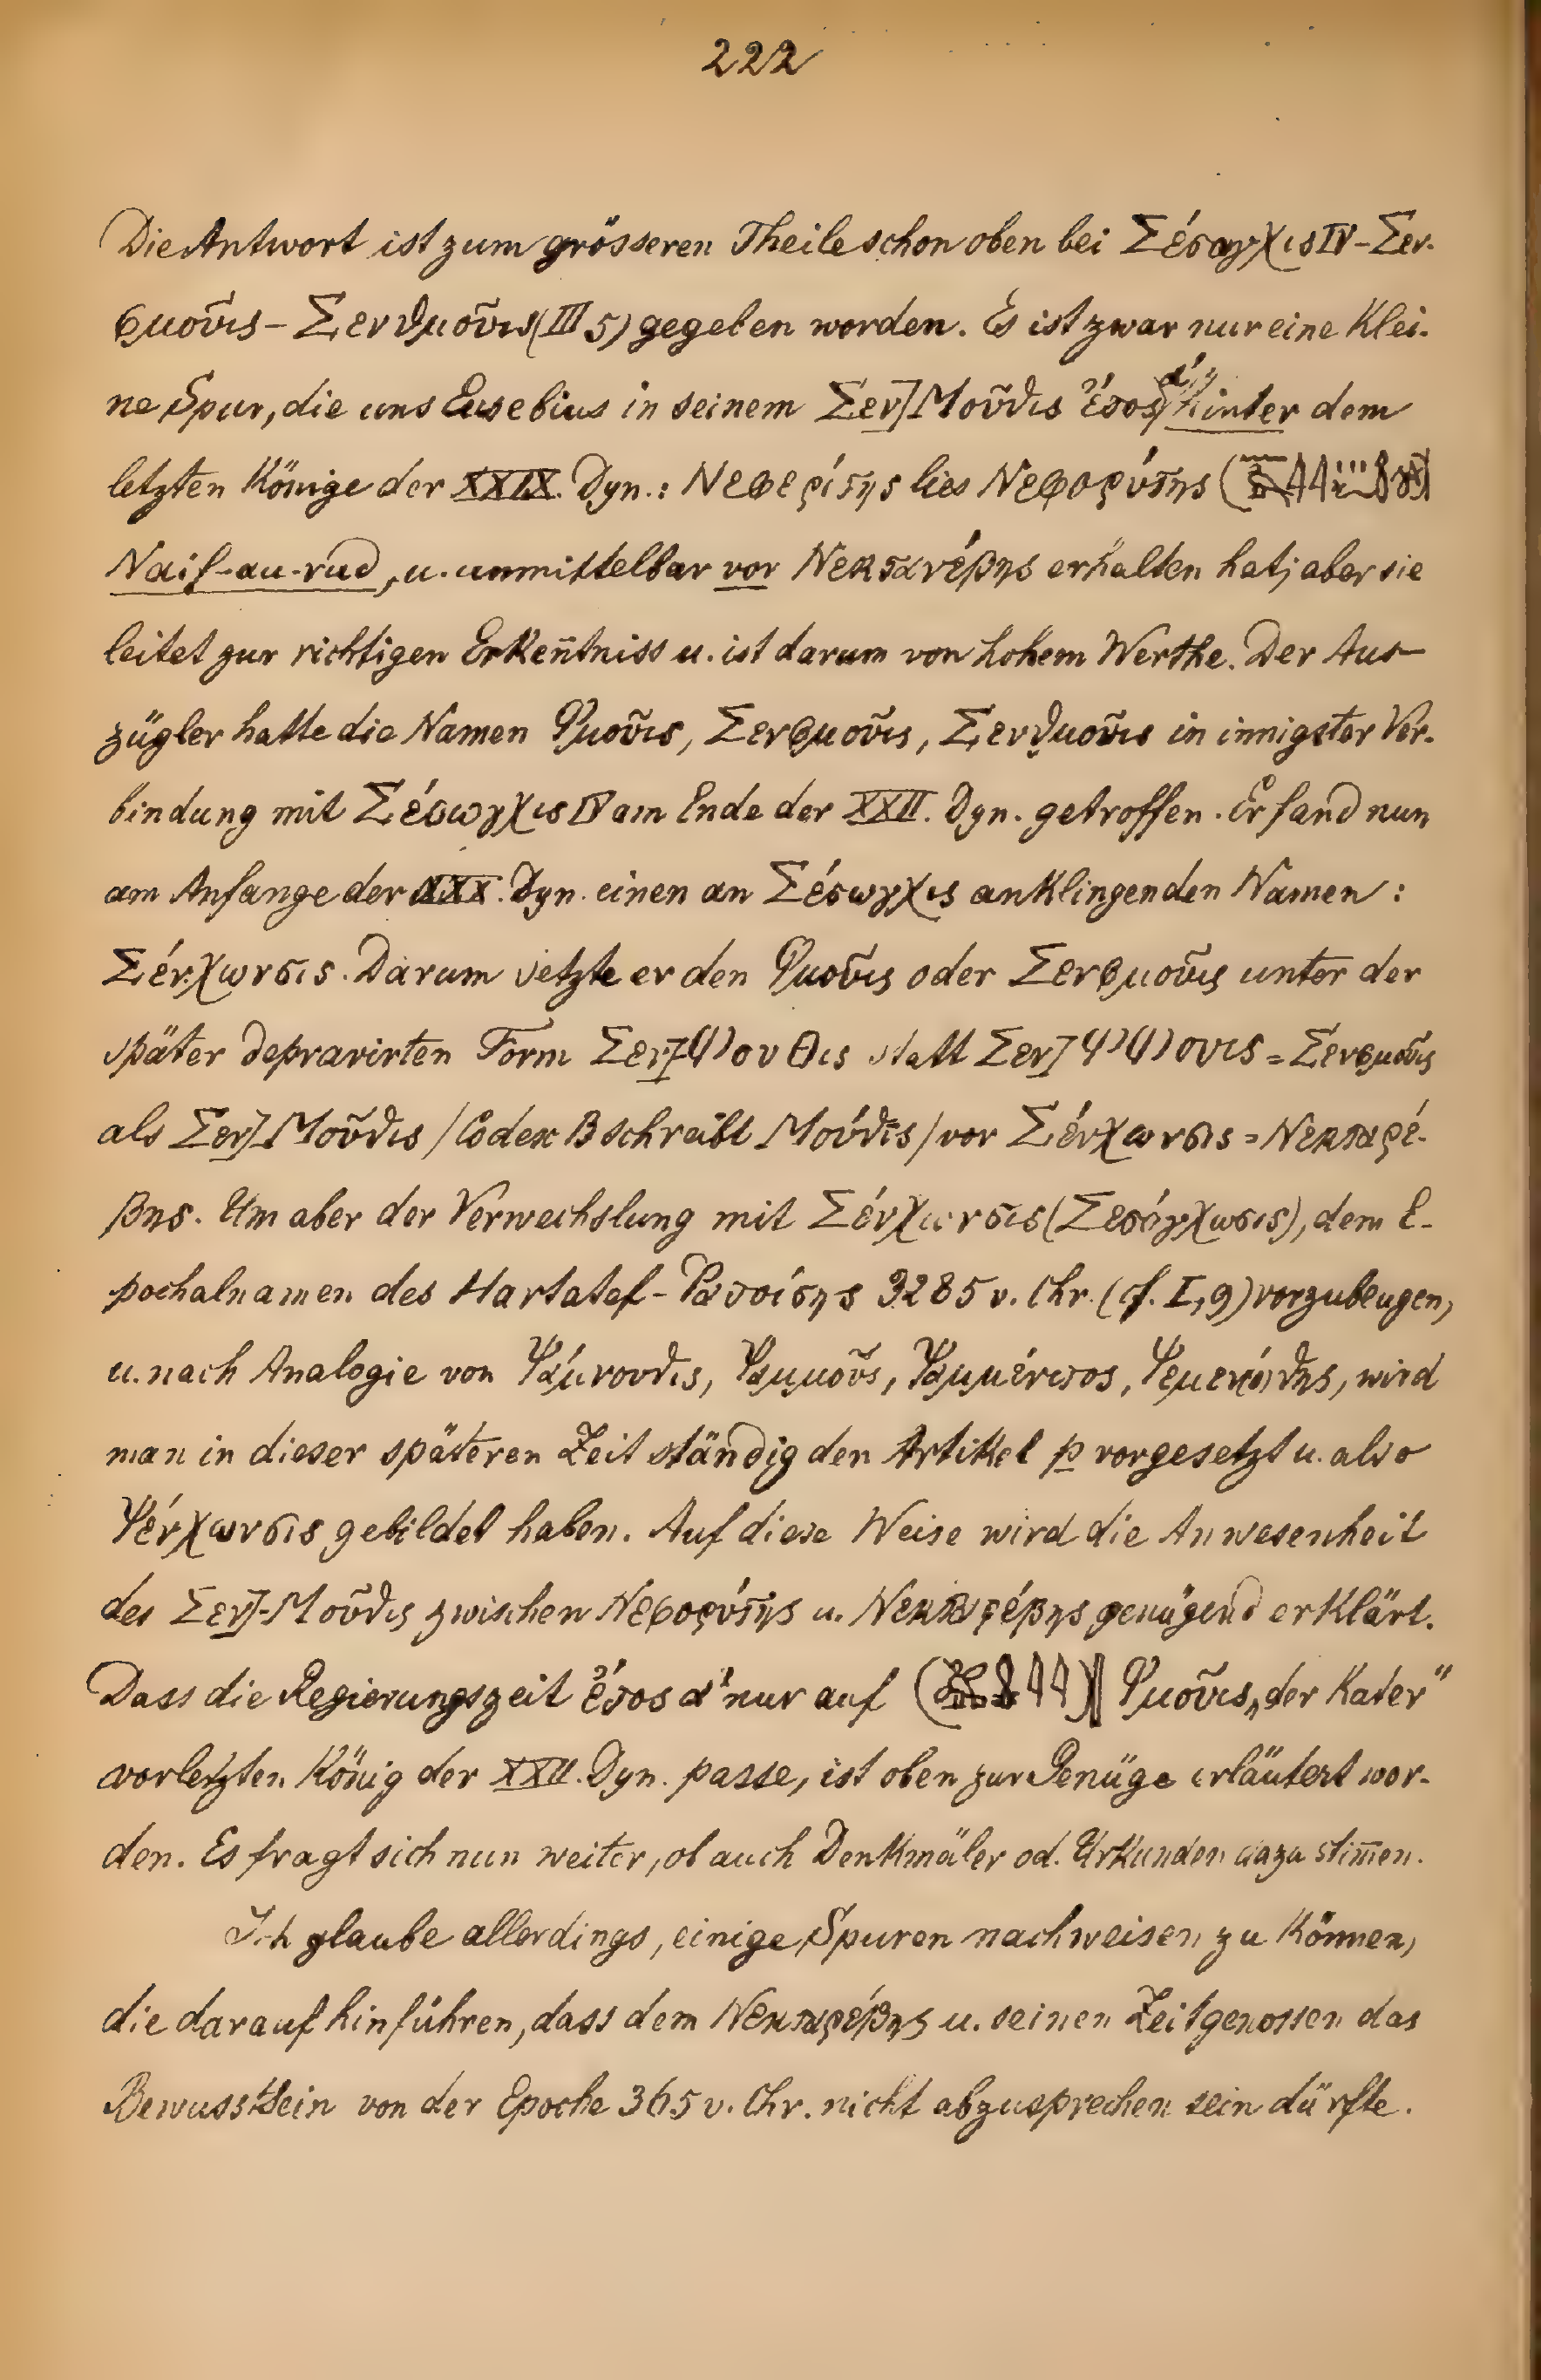 222
Die Antwort ist zum grösseren Theile schon oben bei Σέσωγχις IV – Σεν-
φμοῦις – Σενθμοῦις (III 5) gegeben worden. Es ist zwar nur eine klei-
ne Spur, die uns Eusebius in seinem Σεν]Μοῦθις ἔτος α′ hinter dem
letzten Könige der XXIX. Dyn.: Νεφερίτης lies Νεφορύτης
Naif-au-rud, u. unmittelbar vor Νεκτανέβης erhalten hat; aber sie
leitet zur richtigen Erken̄tniss u. ist darum von hohem Werthe. Der Aus-
zügler hatte die Namen Φμοῦις, Σενφμοῦις, Σενθμοῦις in innigster Ver-
bindung mit Σέσωγχις IV am Ende der XXII. Dyn. getroffen. Er fand nun
am Anfange der XXX. Dyn. einen an Σέσωγχις anklingenden Namen:
Σένχωνσις. Darum setzte er den Φμοῦις oder Σενφμοῦις unter der
später depravirten Form Σεν]Μουθις statt Σεν] ovis = Σενφμοῦις
als Σεν]Μοῦθις /Codex B schreibt Μούθις/ vor Σένχωνσις = Νεκταρέ-
βης. Um aber der Verwechslung mit Σένχωνσις (Σεσόγχωσις), dem E-
pochalnamen des Hartatef – Ῥατοίσης 3285 v. Chr. (cf. I, 9) vorzubeugen,
u. nach Analogie von Ψάμουθις, Ψαμμοῦς, Ψαμμένιτος, wird
man in dieser späteren Zeit ständig den Artikel p vorgesetzt u. also
Ψένχωνσις gebildet haben. Auf diese Weise wird die Anwesenheit
des Σεν]-Μοῦθις zwischen Νεφορύτης u. Νεκταρέβης genügend erklärt.
Dass die Regierungszeit ἔτος α′ nur auf Φμοῦις „der Kater“
vorletzten König der XXII. Dyn. passe, ist oben zur Genüge erläutert wor-
den. Es fragt sich nun weiter, ob auch Denkmäler od. Urkunden dazu stim̄en.
Ich glaube allerdings, einige Spuren nachweisen zu können,
die darauf hinführen, dass dem Νεκταρέβης u. seinen Zeitgenossen das
Bewusstsein von der Epoche 365 v. Chr. nicht abzusprechen sein dürfte.